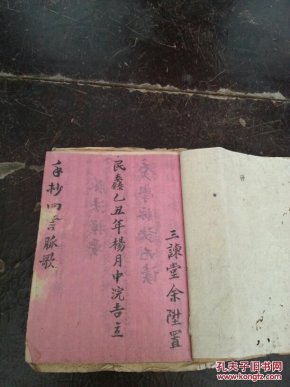 三諫堂余陞置
民 乙丑年楊月中浣吉立
手抄四言脈歌
孔夫子旧书网